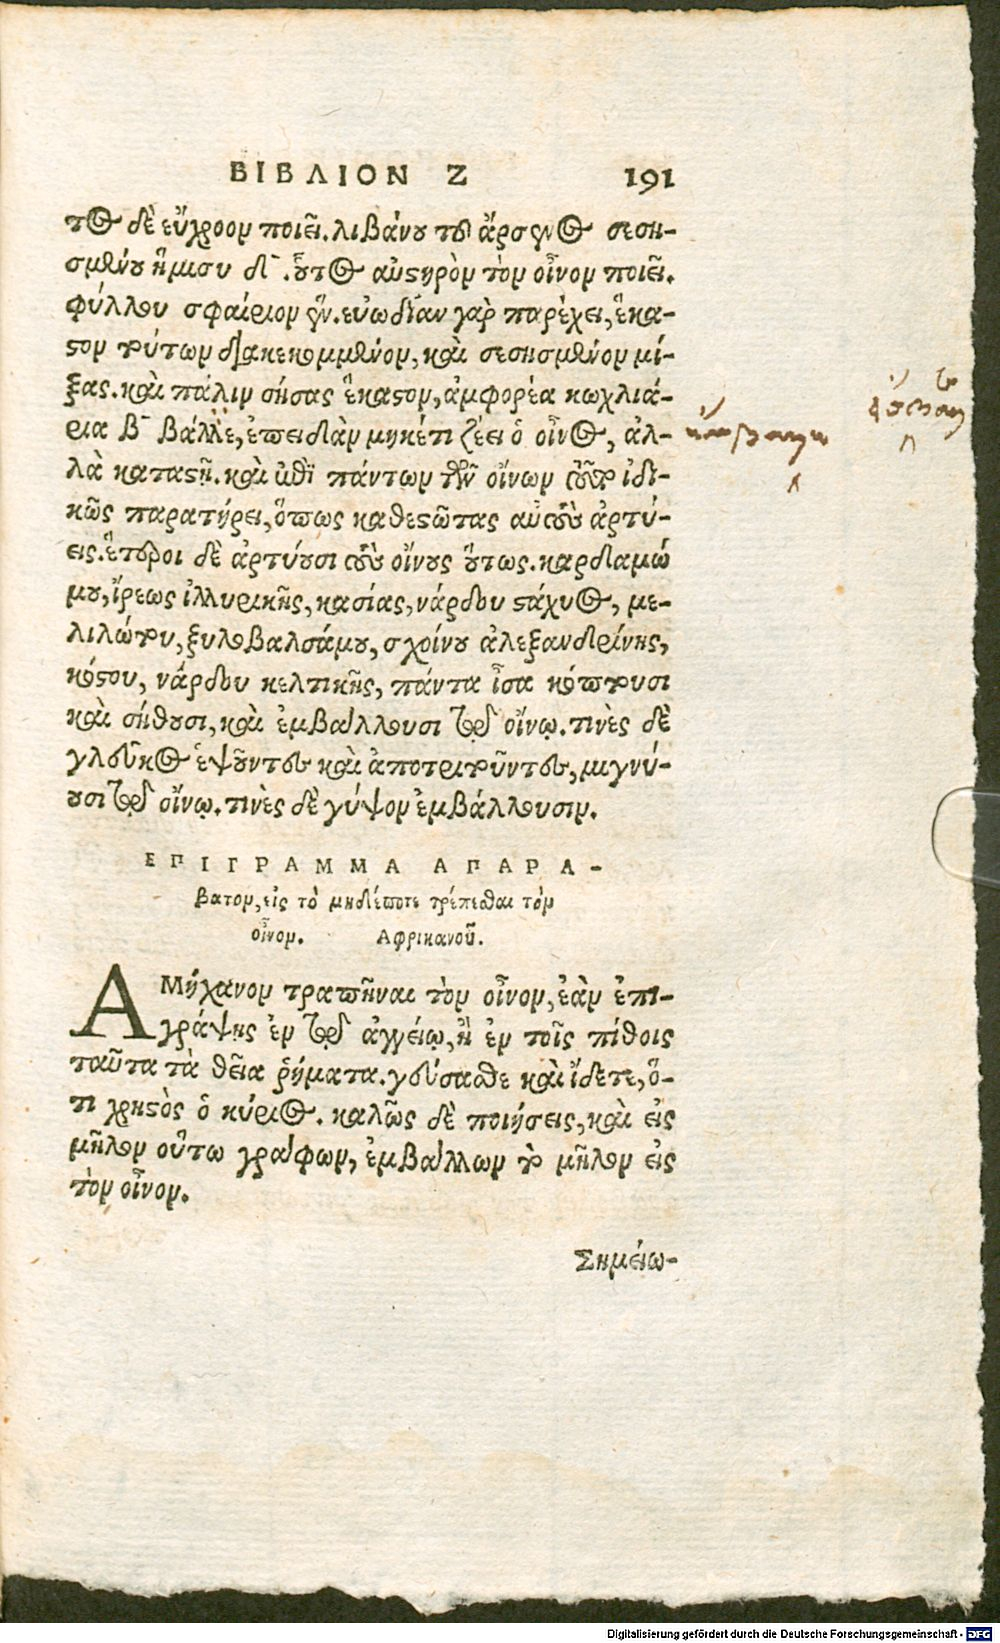 ΒΙΒΛΙΟΝ Ζ 191
τος δὲ εὔχροον ποιεῖ. λιβάνου τοῦ ἄρσενος σεση-
σμένου ἥμισυ δι¯. οὗτος αὐστηρὸν τὸν οἶνον ποιεῖ.
φύλλου σφαίριον ἕν. εὐωδίαν γὰρ παρέχει, ἕκα-
στον τούτων διακεκομμένον, καὶ σεσησμένον μί-
ξας. καὶ πάλιν σήσας ἕκαστον, ἀμφορέα κωχλιά-
ρια β¯ βάλλε, ἐπειδὰν μηκέτι ζέει ὁ οἶνος, ἀλ-
λὰ καταστῇ. καὶ ἐπὶ πάντων τῶν οἴνων τοῦτο ἰδι-
κῶς παρατήρει, ὅπως καθεστῶτας αὐτοὺς ἀρτύ-
εις. ἕτεροι δὲ ἀρτύουσι τοὺς οἴνους οὕτως. καρδαμώ
μου, ἴρεως ἰλλυρικῆς, κασίας, νάρδου στάχυος, με-
λιλώτου, ξυλοβαλσάμου, σχοίνου ἀλεξανδρίνης,
κόστου, νάρδου κελτικῆς, πάντα ἶσα κόπτουσι
καὶ σήθουσι, καὶ ἐμβάλλουσι τῷ οἴνῳ. τινὲς δὲ
γλεῦκος ἑψοῦντες καὶ ἀποτριτοῦντες, μιγνύ-
ουσι τῷ οἴνῳ. τινὲς δὲ γύψον ἐμβάλλουσιν.
ΕΠΙΓΡΑΜΜΑ ΑΠΑΡΑ-
βατον, εἰς τὸ μηδέποτε τρέπεσθαι τὸν
οἶνον. Αφρικανοῦ.
ΑΜήχανον τραπῆναι τὸν οἶνον, ἐὰν ἐπι-
γράψῃς ἐν τῷ ἀγγείῳ, ἢ ἐν τοῖς πίθοις
ταῦτα τὰ θεῖα ῥήματα. γεύσασθε καὶ ἴδετε, ὅ-
τι χρηστὸς ὁ κύριος. καλῶς δὲ ποιήσεις, καὶ εἰς
μῆλον οὕτω γράφων, ἐμβάλλων τὸ μῆλον εἰς
τὸν οἶνον.
Σημείω-
Digitalisierung gefördert durch die Deutsche Forschungsgemeinschaft - DFG